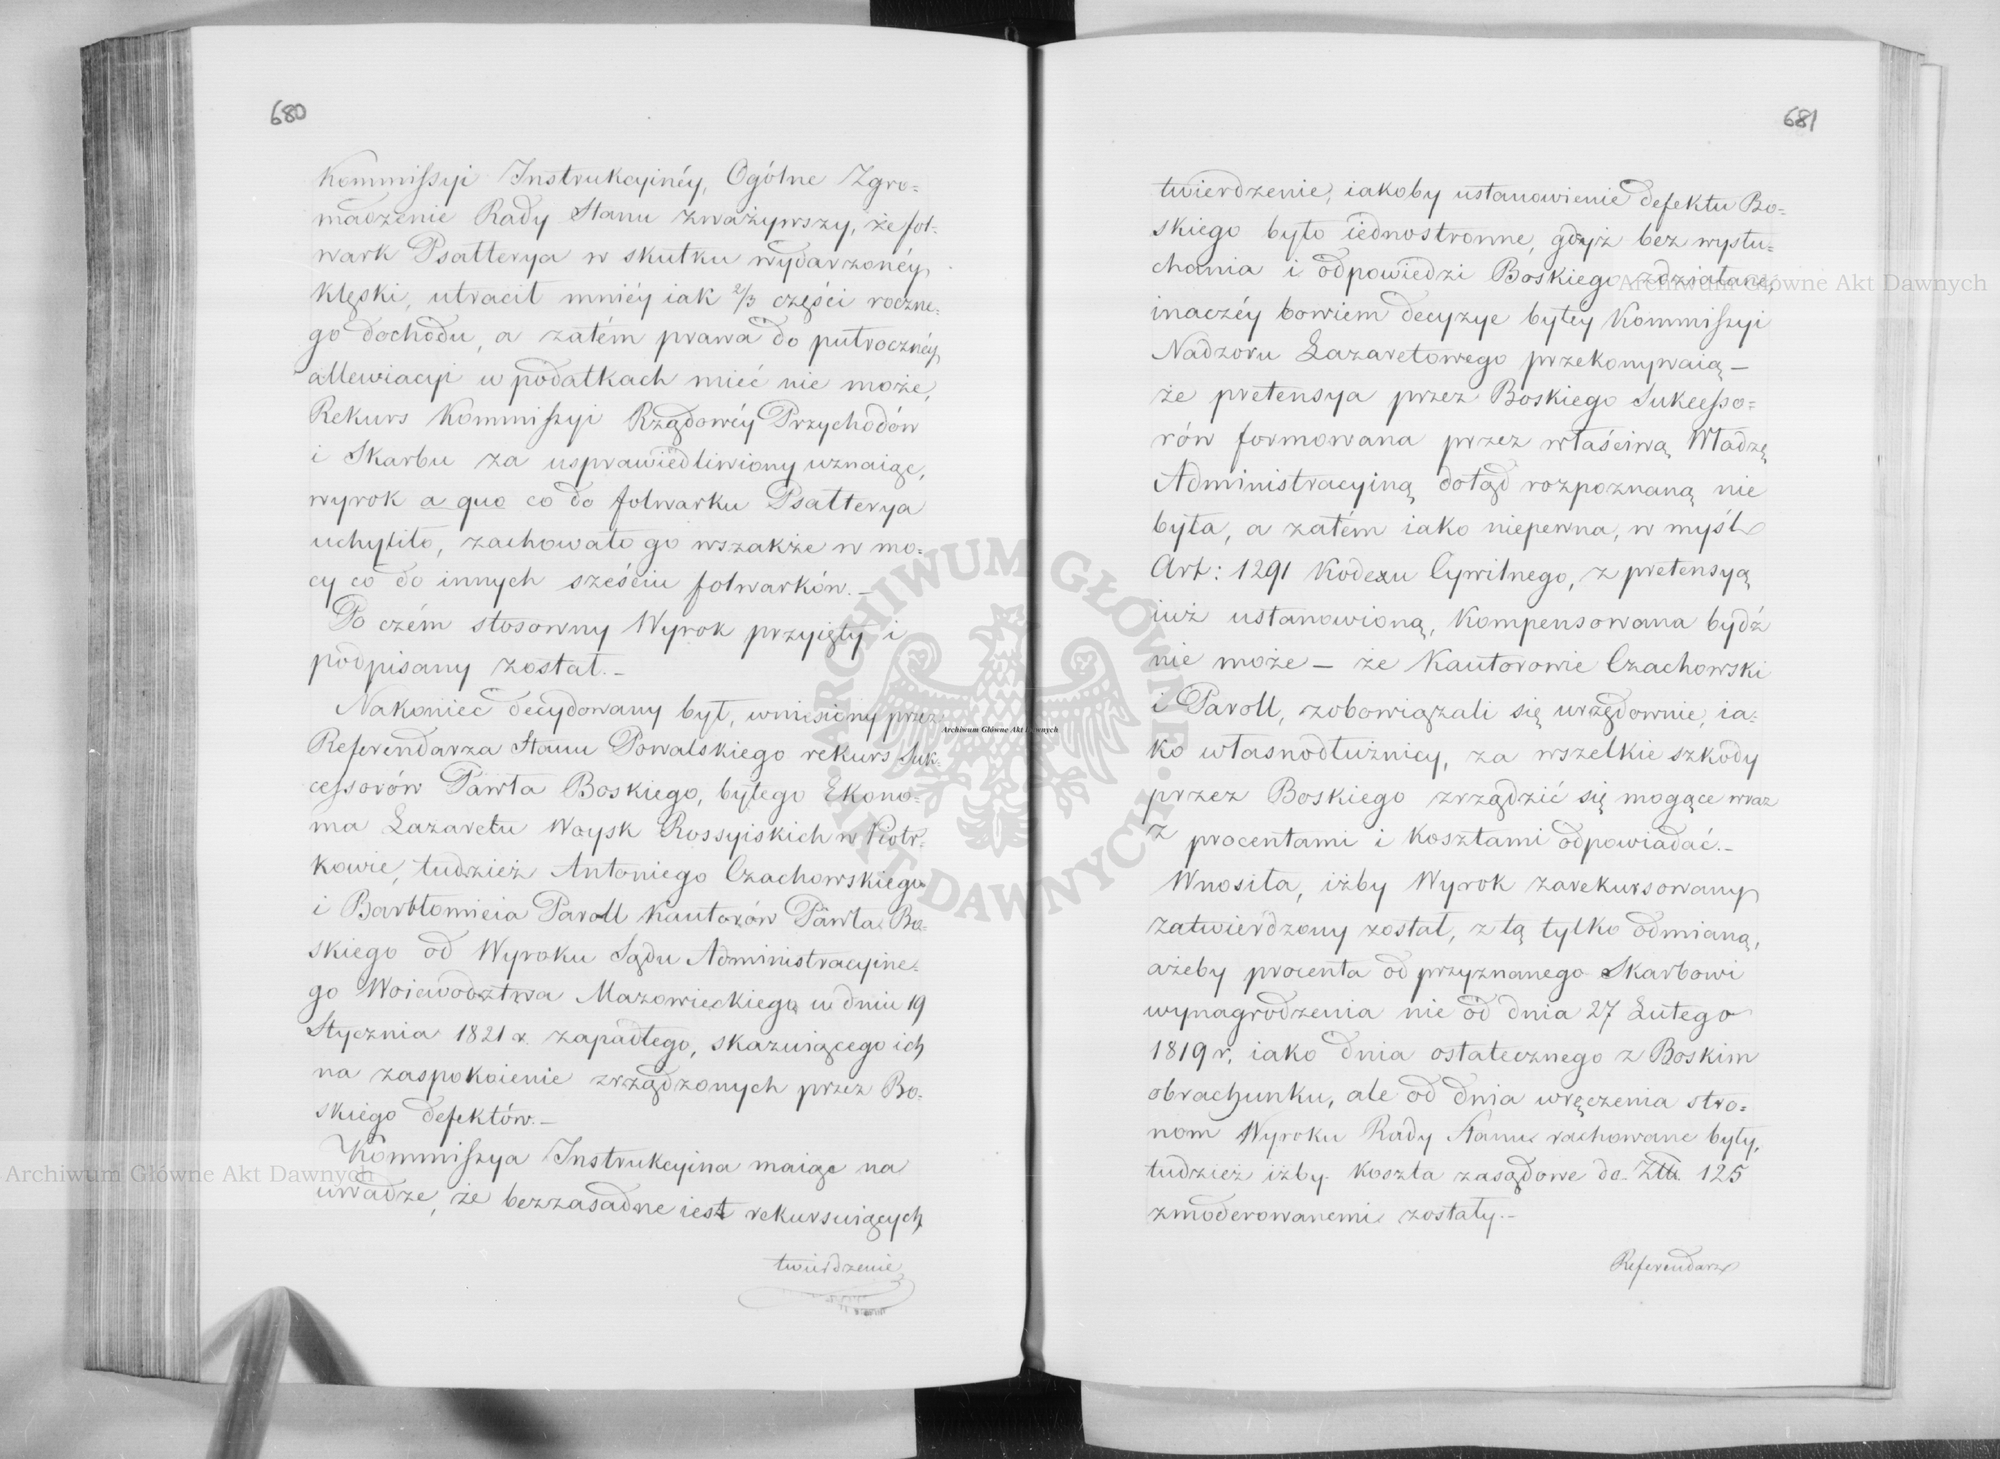 680
Kommissyi Instrukcyinéy, Ogólne Zgro=
madzenie Rady Stanu zważywszy, że fol=
wark Psatterya w skutku wydarzonéy
klęski, utracił mniéy iak 2/3 części roczne=
go dochodu, a zatém prawa do putrocznéy
allewiacyi w podatkach mieć nie może,
Rekurs Kommissyi Rządowéy Przychodów
i Skarbu za usprawiedliwiony uznaiąc,
wyrok a quo co do folwarku Psatterya
uchyliło, zachowało go wszakże w mo=
cy co do innych sześciu folwarków.—
Po czém stosowny Wyrok przyięty i
podpisany został.—
Nakoniec decydowany był, wniesiony przez
Referendarza Stanu Powalskiego rekurs Suk=
cessorów Pawła Boskiego, byłego Ekono=
ma Lazaretu Woysk Rossyiskich w Piotr=
kowie, tudzież Antoniego Czachowskiego
i Bartłomieia Paroll Kautorów Pawła Bo=
skiego od Wyroku Sądu Administracyine=
go Woiewodztwa Mazowieckiego w dniu 19
Stycznia 1821 r. zapadłego, skazuiącego ich
na zaspokoienie zrządzonych przez Bo=
skiego defektów.—
Kommissya Instrukcyina maiąc na
uwadze, że bezzasadne iest rekursuiących
twierdzenie
681
twierdzenie, iakoby ustanowienie defektu Bo=
skiego było iednostronne, gdyż bez wysłu=
chania i odpowiedzi Boskiego zdziałane,
inaczéy bowiem decyzye byłéy Kommissyi
Nadzoru Lazaretowego przekonywaią —
że pretensya przez Boskiego Sukcesso=
rów formowana przez właściwą Władzę
Administracyiną dotąd rozpoznaną nie
była, a zatém iako niepewna, w myśl
Art: 1291 Kodexu Cywilnego, z pretensyą
iuż ustanowioną, kompensowana bydź
nie może — że Kautorowie Czachowski
i Paroll, zobowiązali się urzędownie, ia=
ko własnodłużnicy, za wszelkie szkody
przez Boskiego zrządzić się mogące wraz
z procentami i kosztami odpowiadać.—
Wnosiła, iżby Wyrok zarekursowany
zatwierdzony został, z tą tylko odmianą,
ażeby procenta od przyznanego Skarbowi
wynagrodzenia nie od dnia 27 Lutego
1819 r. iako dnia ostatecznego z Boskim
obrachunku, ale od dnia wręczenia stro=
nom Wyroku Rady Stanu rachowane były,
tudzież iżby koszta zasądowe do Złt. 125
zmoderowanemi zostały.—
Referendarz
Archiwum Główne Akt Dawnych
Archiwum Główne Akt Dawnych
Archiwum Główne Akt Dawnych
ARCHIWUM GŁÓWNE AKT DAWNYCH